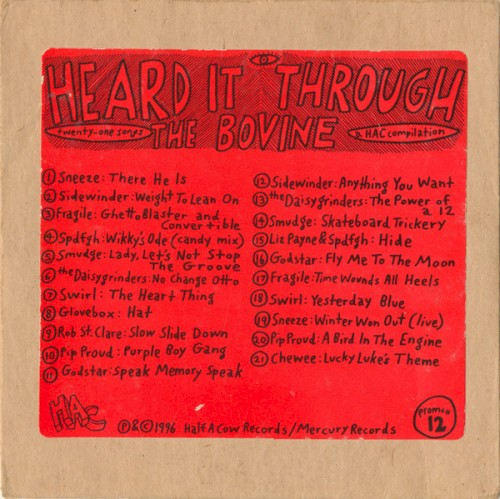 HEARD IT THROUGH
twenty-one songs THE BOVINE a HAC compilation
1 Sneeze: There He Is
2 Sidewinder: Weight To Lean On
3 Fragile: Ghetto Blaster and
Convertible
4 Spdfgh: Wikky's Ode (candy mix)
5 Smudge: Lady, Let's Not Stop
The Groove
6 the Daisygrinders: No Change Otto
7 Swirl: The Heart Thing
8 Glovebox: Hat
9 Rob St. Clare: Slow Slide Down
10 Pip Proud: Purple Boy Gang
11 Godstar: Speak Memory Speak
12 Sidewinder: Anything You Want
13 the Daisygrinders: The Power of
a 12
14 Smudge: Skateboard Trickery
15 Liz Payne & Spdfgh: Hide
16 Godstar: Fly Me To The Moon
17 Fragile: Time Wounds All Heels
18 Swirl: Yesterday Blue
19 Sneeze: Winter Won Out (live)
20 Pip Proud: A Bird In The Engine
21 Chewee: Lucky Luke's Theme
HAC
℗&©1996 Half A Cow Records/Mercury Records
promco
12